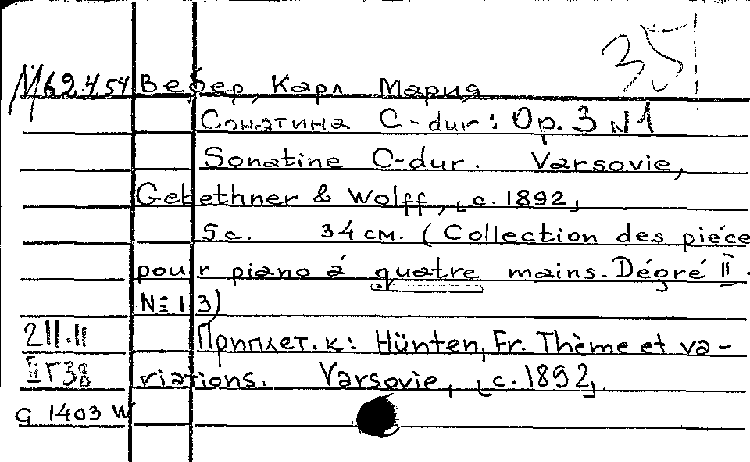 35
М62.454 Вебер, Карл Мария
Сонатина C-dur: Op. 3 N1
Sonatine C-dur. Varsovie,
Gebethner & Wolff, [c. 1892]
5 с. 34 см. (Collection des pièce
pour piano à quatre mains. Dégré II.
№ 13)
211.11 Приплет. к: Hünten, Fr. Thème et va-
II Г38 riations. Varsovie, [c. 1892].
G 1403 W